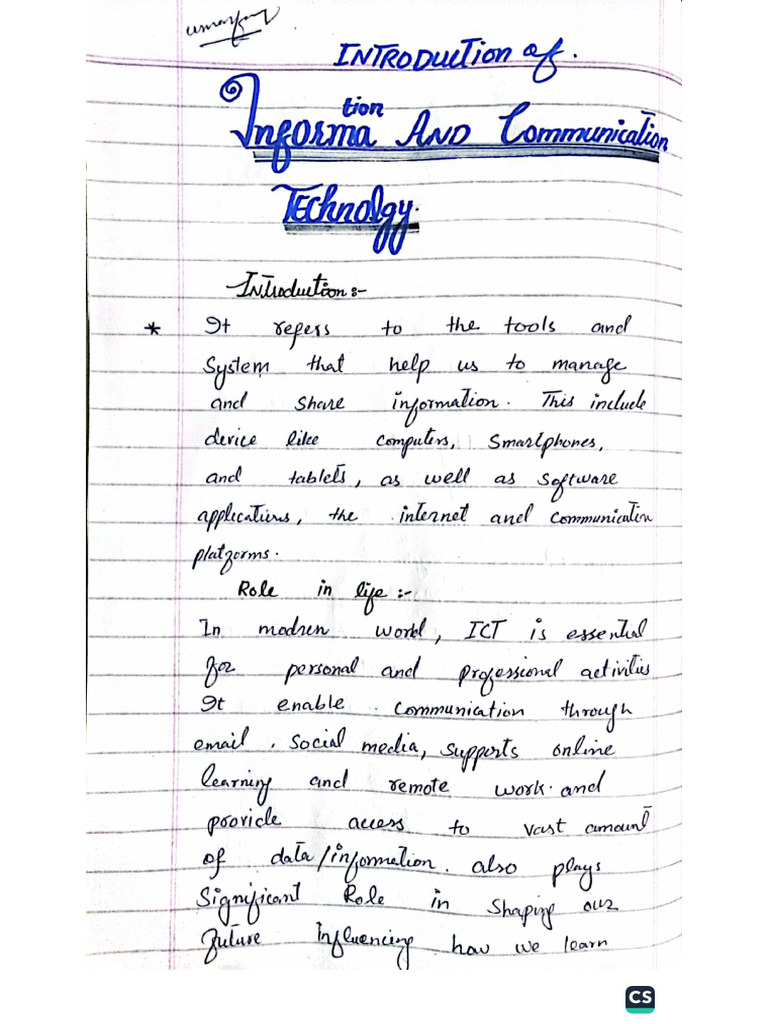 INTRODUCTION of.
tion
Informa AND Communication
TEchnolgy.
Introduction:-
* It refers to the tools and
System that help us to manage
and share information. This include
device like computers, Smartphones,
and tablets, as well as software
applications, the internet and communication
platforms.
Role in life :-
In modren world, ICT is essential
for personal and professional activities
It enable communication through
email, social media, supports online
learning and remote work and
provide access to vast amount
of data/information. also plays
Significant Role in shaping our
future influencing how we learn
CS